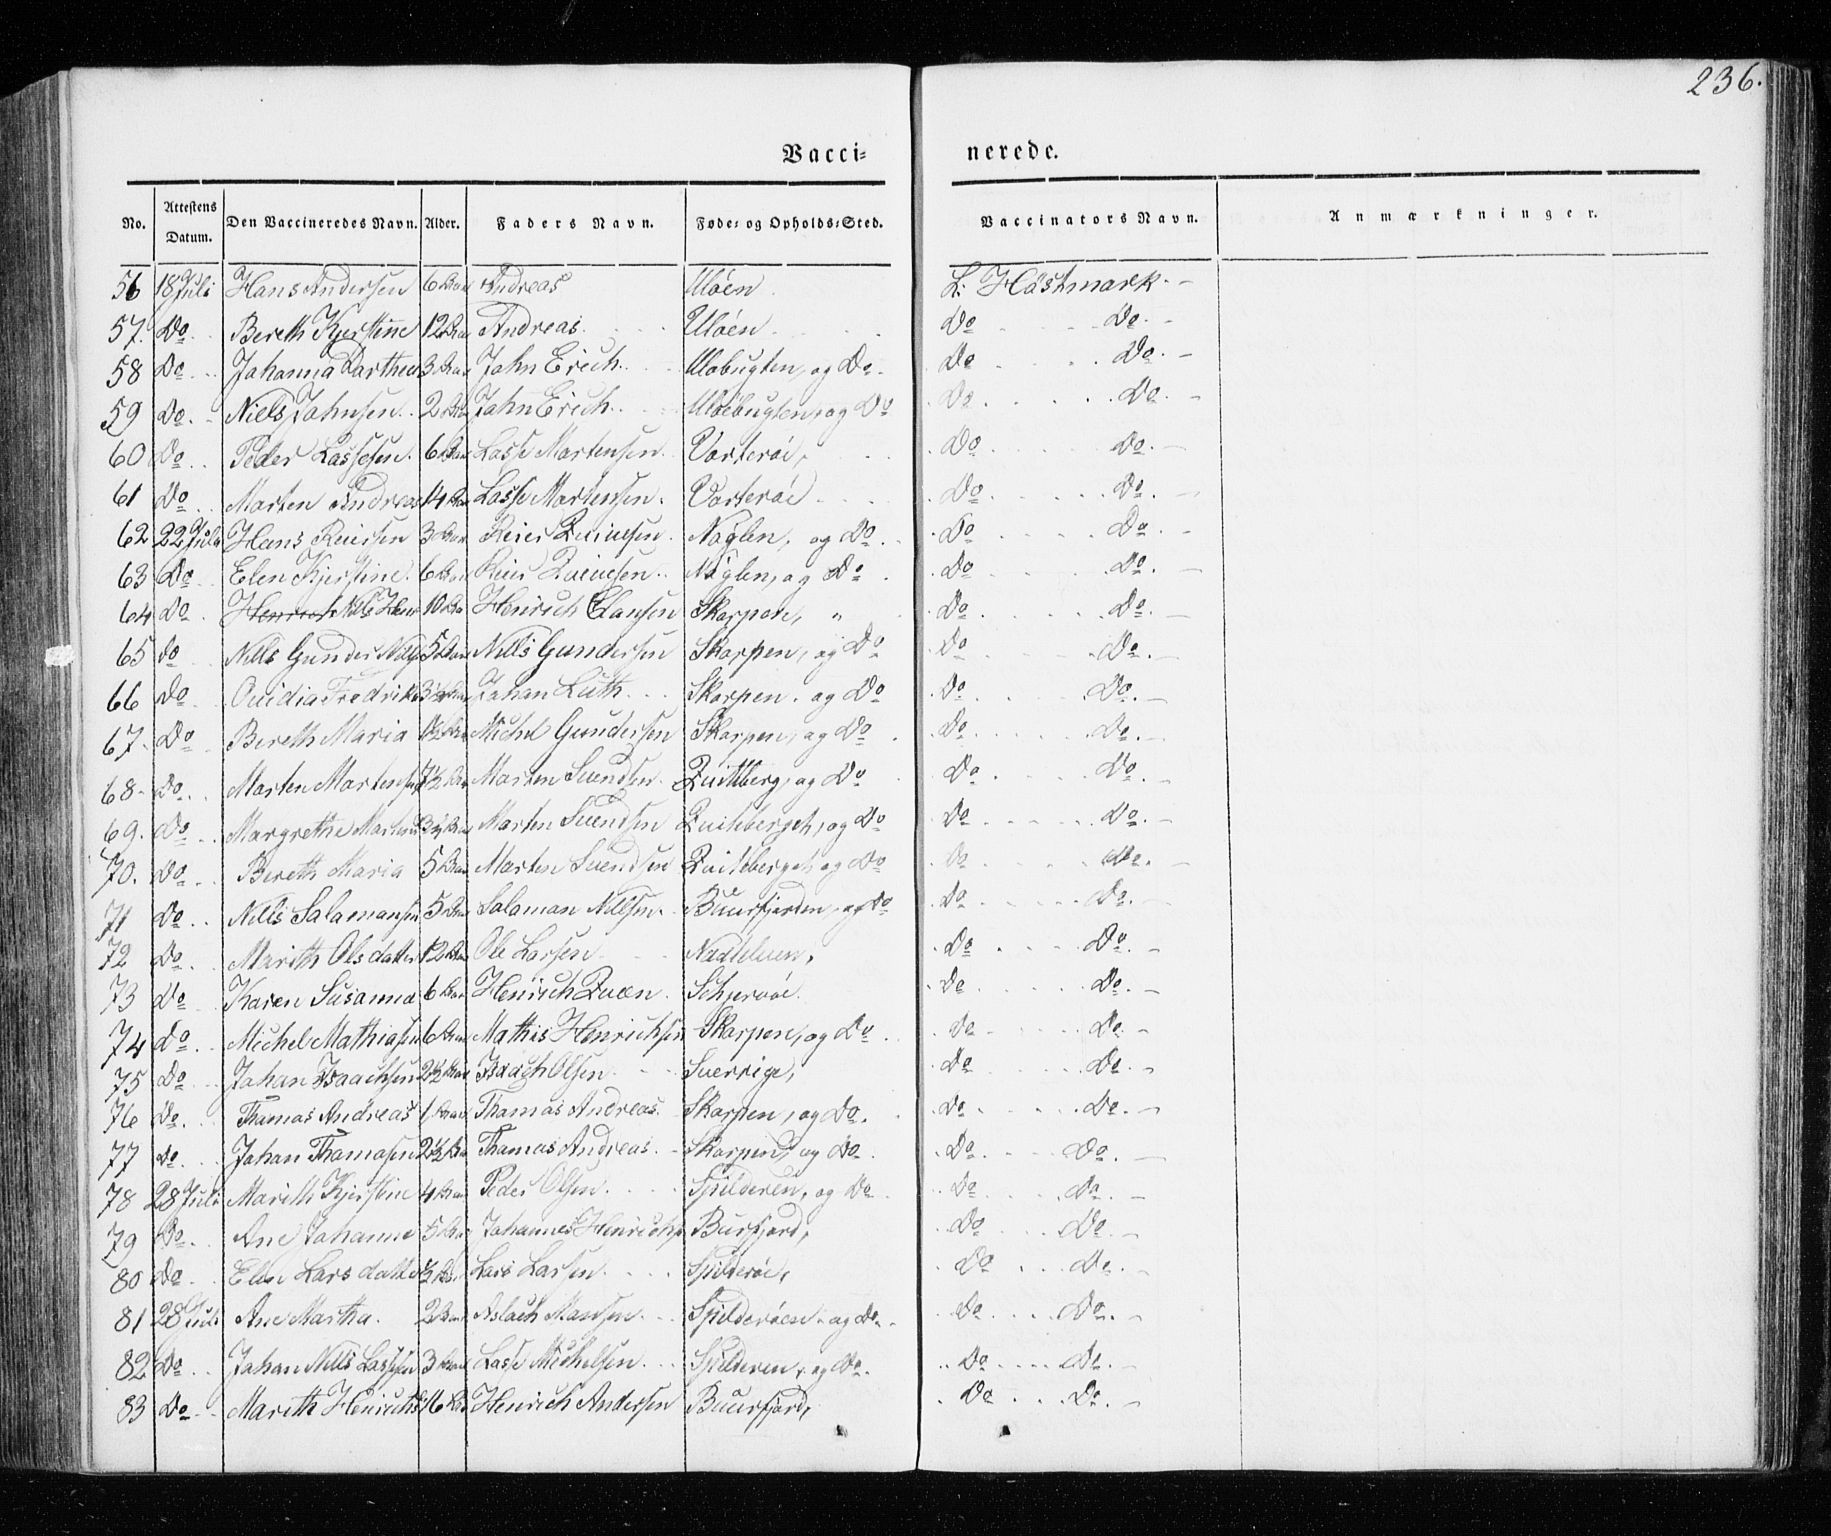 236.
Vacci= nerede.
No. Attestens Datum. Den Vaccineredes Navn. Alder. Faders Navn. Føde= og Opholds=Sted. Vaccinators Navn. Anmærkninger.
56 18 Juli Hans Andersen 6 Andreas Uløen L: Hastmark. -
57. Do Bereth Kjerstine 12 Andreas Uløen Do Do. -
58 Do Johanna 3 John Erich Uløbugten, og Do. Do Do. -
59 Do Niels Johnsen 2 John Erich Uløebugten, og Do Do Do. -
60 Do Peder Lassesen. 6 Lasse Martensen Vorterøe, Do Do. -
61 Do Marten Andreas 14 Lasse Martensen Vorterøe Do Do. -
62. 22 Juli Hans Reiersen 3 Reier Nøglen, og Do Do Do. -
63 Do Elen Kjerstine 6 Reier Nøglen, og Do Do Do. -
64 Do Henrich Nils 10 Henrich Clausen Skorpen, " Do Do. -
65 do Nills Gunder 5 Nills Gundersen Skorpen, og Do Do Do. -
66 Do Ovidia Fredrik 3½ Johan Luth Skorpen. og Do Do Do. -
67. Do Bereth Maria 1½ Michel Gundersen Skorpen, og Do Do Do. -
68- Do Marten Martensen 7½ Marten Svendsen Quitberg, og Do Do Do. -
69. Do Margrethe 3½ Marten Svendsen Quiteberget, og Do Do Do. -
70. Do Bereth Maria 5 Marten Svendsen Quiteberget, og Do Do Do. -
71 Do Nills Salamonsen 5 Salamon Nilsen Buurfjorden, og Do Do Do. -
72 Do Marith Olsdatter 12 Ole Larsen Do Do. -
73 Do Karen Susanna 6 Henrich Quæn Schjervöe. Do Do. -
74 Do Michel Mathiasen 6 Mathis Henrichsen Skorpen, og Do Do Do. -
75 Do Johan Isaachsen 2½ Isaach Olsen Sverrige, Do Do. -
76 Do Thomas Andreas 1 Thomas Andreas Skorpen, og Do. Do Do. -
77 Do Johan Thomasen 2½ Thomas Andreas Skorpen, og Do Do Do. -
78 28 Juli Marith Kjerstine 4 Peder Olsen Spilderen, og Do Do Do. -
79 Do Ane Johanne 5 Johannes Henrichs Burfjord, Do Do. -
80 Do Elen Larsdatter ½ Lars Larsen Spilderøe, Do Do. -
81 28 Juli Ane Martha. 2 Aslach Monsen Spilderøen og Do Do Do. -
82 Do Johan Nills Lassesen 3 Lasse Michelsen Spilderen, og Do. Do Do. -
83 Do Marith Henrichs 16 Henrich Andersen Buurfjord, Do Do. -